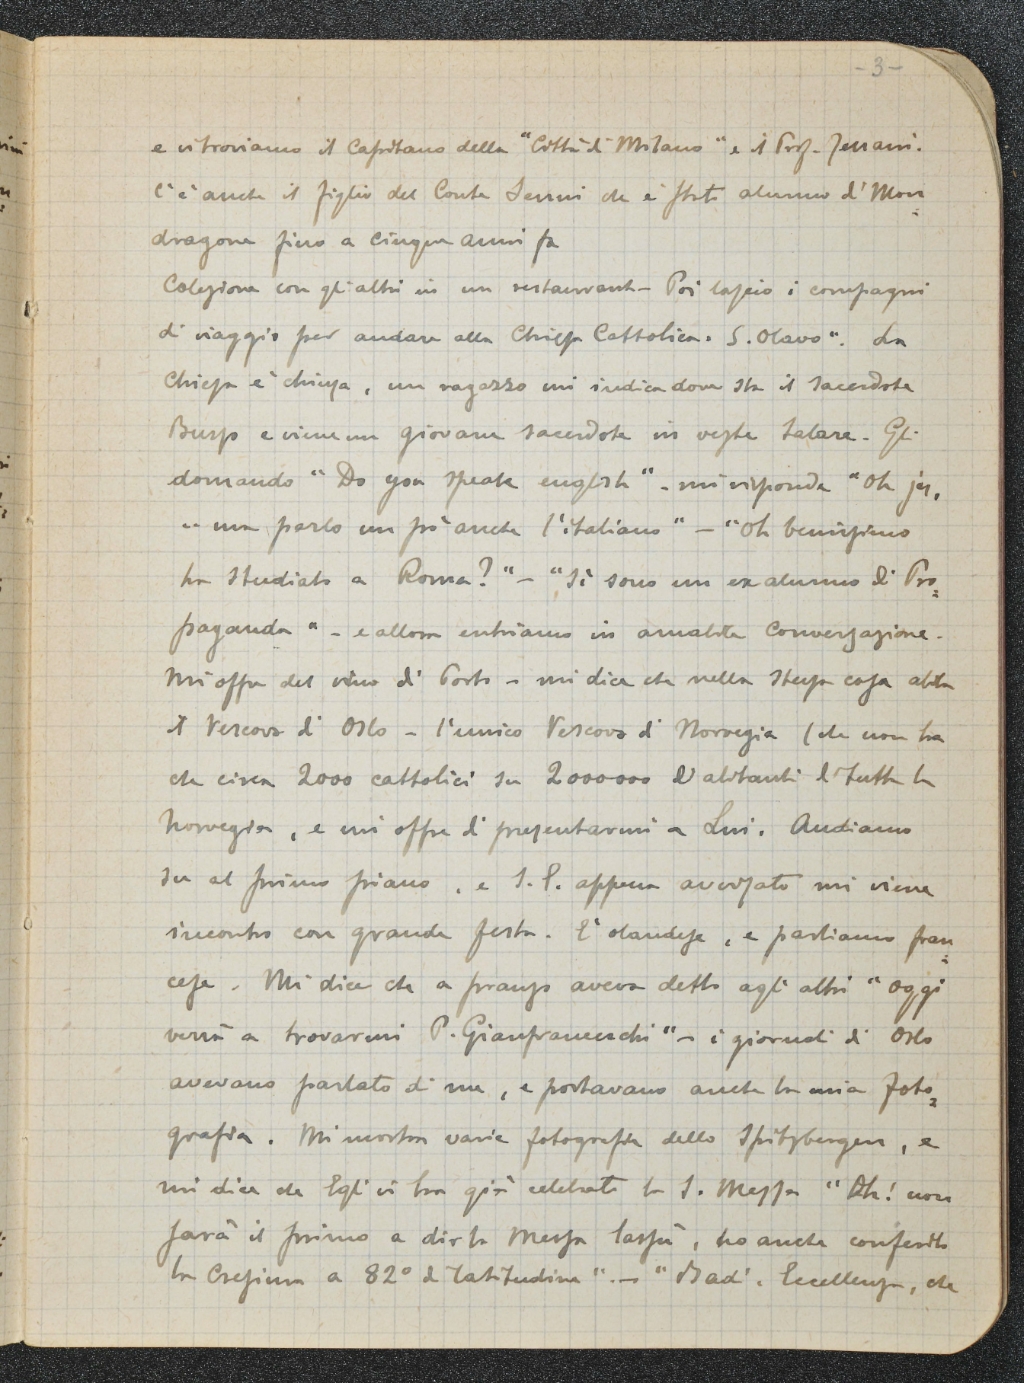 -3-
e vi troviamo il Capitano della "Città di Milano" e il Prof.
C'è anche il figlio del Conte Senni che è stato alunno di Mon=
dragone fino a cinque anni fa
Colazione con gli altri in un restaurant - Poi lascio i compagni
di viaggio per andare alla Chiesa Cattolica "S. Olavo". La
Chiesa è chiusa, un ragazzo mi indica dove sta il sacerdote
Busso e viene un giovane sacerdote in veste talare. Gli
domando "Do you speake english" - mi risponde "Oh jes,
ma parlo un pò anche l'italiano" - "Oh benissimo
ha studiato a Roma?" - "Sì sono un ex alunno di Pro=
paganda" - e allora entriamo in amabile conversazione.
Mi offre del vino di Porto - mi dice che nella stessa casa abita
il Vescovo di Oslo - l'unico Vescovo di Norvegia (che non ha
che circa 2000 cattolici su 2000000 d'abitanti di tutta la
Norvegia, e mi offre di presentarmi a Lui. Andiamo
su al primo piano, e S. E. appena avvisato mi viene
incontro con grande festa. È olandese, e parliamo fran=
cese. Mi dice che a pranzo aveva detto agli altri "oggi
verrà a trovarmi P. Gianfranceschi" - i giornali di Oslo
avevano parlato di me, e portavano anche la mia foto=
grafia. Mi mostra varie fotografie dello Spitzbergen, e
mi dice che Egli vi ha già celebrato la S. Messa "Ah! non
sarà il primo a dir la Messa lassù, ho anche conferito
la Cresima a 82° di latitudine" - "Badi, Eccellenza, che